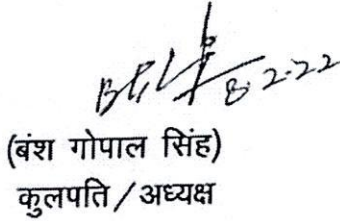 8.2.22
(बंश गोपाल सिंह)
कुलपति / अध्यक्ष